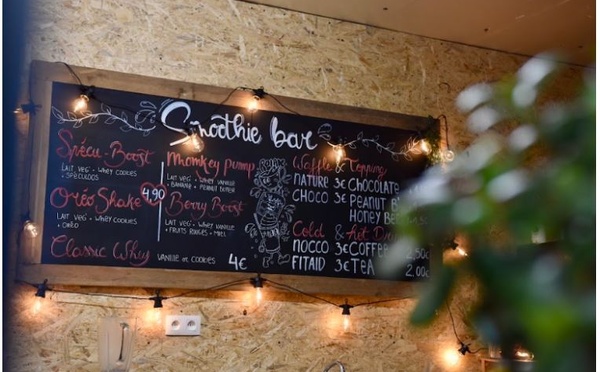 Smoothie bar
Spécu-Boost
LAIT VEGI • WHEY COOKIES
• SPECULOOS
Oréo Shake
LAIT VEGI • WHEY COOKIES
• OREO
4.90
Monkey pump
LAIT VEGI • WHEY VANILLE
• BANANE • PEANUT BUTTER
Berry Boost
LAIT VEGI • WHEY VANILLE
• FRUITS ROUGES • MIEL
Classic Whey VANILLE OU COOKIES 4€
Waffle & Topping
NATURE 3€ CHOCOLATE
CHOCO 3€ PEANUT
HONEY
Cold & Hot
NOCCO 3€ COFFEE
FITAID 3€ TEA 2,00€